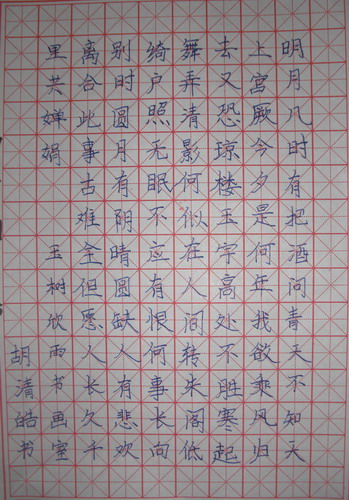 明月几时有把酒问青天不知天
上宫厥今夕是何年我欲乘风归
去又恐琼楼玉宇高处不胜寒起
舞弄清影何似在人间转朱阁低
绮户照无眠不应有恨何事长向
别时圆月有阴晴圆缺人有悲欢
离合此事古难全但愿人长久千
里共婵娟 玉树欣雨书画室
胡清皓书